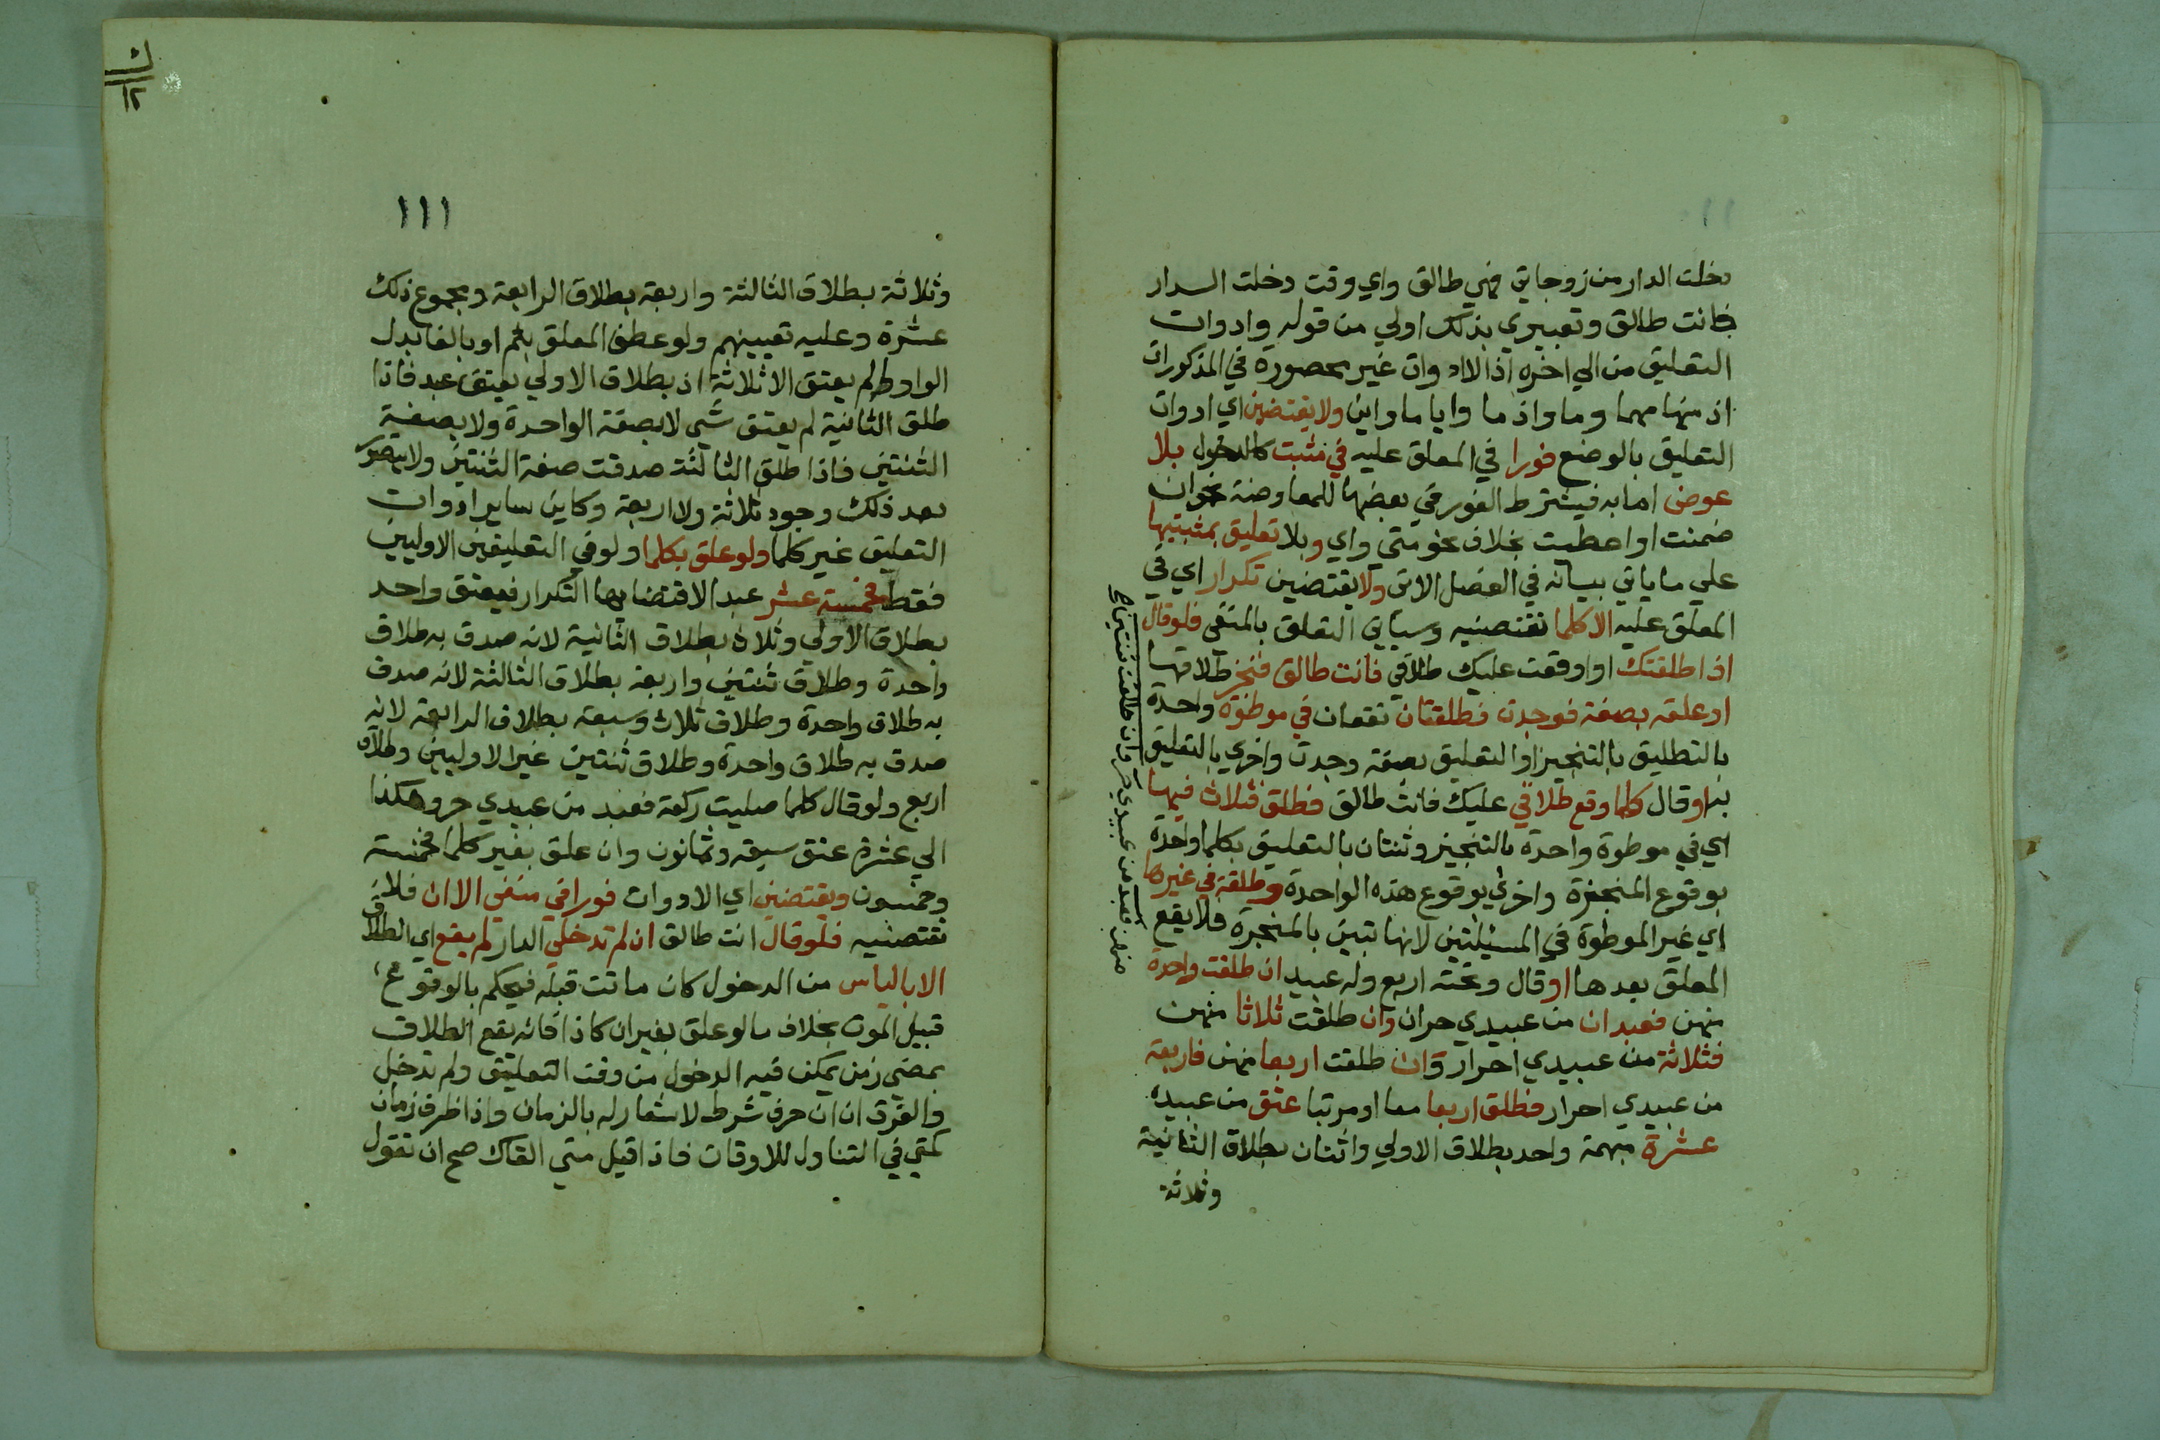 دخلت الدار من زوجاتي فهي طالق واي وقت دخلت الدار
فانت طالق وتعبيري بذلك اولي من قوله وادوات
التعليق من الي اخره اذ الادوات غير محصورة في المذكورات
اذ منها مهما وما واذ ما وايا ما واين ولا يقتضين اي ادوات
التعليق بالوضع فورا في المعلق عليه في مثبت كالدخول بلا
عوض اما به فيشترط الفور في بعضها للمعاوضة نحو ان
ضمنت او اعطيت بخلاف نحو متي واي وبلا تعليق بمشيتها
علي ما ياتي بيانه في الفصل الاتي ولا يقتضين تكرارا اي في
المعلق عليه الا كلما تقتضيه وسياتي التعلق بالمنفي فلو قال
اذا طلقتك او اوقعت عليك طلاقي فانت طالق فنجز طلاقها
او علقه بصفة فوجدت فطلقتان تقعان في موطؤة واحدة
بالتطليق بالتنجيز او التعليق بصفة وجدت واخري بالتعليق
به او قال كلما وقع طلاقي عليك فانت طالق فطلق فثلاث فيها
اي في موطوة واحدة بالتنجيز وثنتان بالتعليق بكلما واحدة
بوقوع المنجزة واخري بوقوع هذه الواحدة وطلقة في غيرها
اي غير الموطوة في المسئلتين لانها تبين بالمنجزة فلا يقع
المعلق بعدها او قال وتحته اربع وله عبيد ان طلقت واحدة
منهن فعبد ان من عبيدي حران وان طلقت ثلاثا منهن
فثلاثة من عبيدي احرار وان طلقت اربعا منهن فاربعة
من عبيدي احرار فطلق اربعا معا او مرتبا عتق من عبيده
عشرة مبهمة واحد بطلاق الاولي واثنان بطلاق الثانية
وثلاثة
منهن فعبد من عبيدي حر وان طلقت ثنتين صح
١١١
وثلاثة بطلاق الثالثة واربعة بطلاق الرابعة ومجموع ذلك
عشرة وعليه تعيينهم ولو عطف المعلق بثم او بالفا بدل
الواو لم يعتق الا ثلاثة اذ بطلاق الاولي يعتق عبد فاذا
طلق الثانية لم يعتق شي لا بصفة الواحدة ولا بصفة
الثنتين فاذا طلق الثالثة صدقت صفة الثنتين ولا يتصور
بعد ذلك وجود ثلاثة ولا اربعة وكاين ساير ادوات
التعليق غير كلما ولو علق بكلما ولو في التعليقين الاوليين
فقط فخمسة عشر عبدا لاقتضايها التكرار فيعتق واحد
بطلاق الاولي وثلاث بطلاق الثانية لانه صدق به طلاق
واحدة وطلاق ثنتين واربعة بطلاق الثالثة لانه صدق
به طلاق واحدة وطلاق ثلاث وسبعة بطلاق الرابعة لانه
صدق به طلاق واحدة وطلاق ثنتين غير الاوليين وطلاق
اربع ولو قال كلما صليت ركعة فعبد من عبيدي حر وهكذا
الي عشرة عتق سبعة وثمانون وان علق بغير كلما فخمسة
وخمسون ويقتضين اي الادوات فورا في منفي الا ان فلا
تقتضيه فلو قال انت طالق ان لم تدخلي الدار لم يقع اي الطلاق
الا بالياس من الدخول كان ماتت قبله فيحكم بالوقوع
قبيل الموت بخلاف ما لو علق بغير ان كاذا فانه يقع الطلاق
بمضي زمن يمكن فيه الدخول من وقت التعليق ولم تدخل
والفرق ان ان حرف شرط لا اشعار له بالزمان واذا ظرف زمان
كمتي في التناول للاوقات فاذا قيل متي القاك صح ان تقول